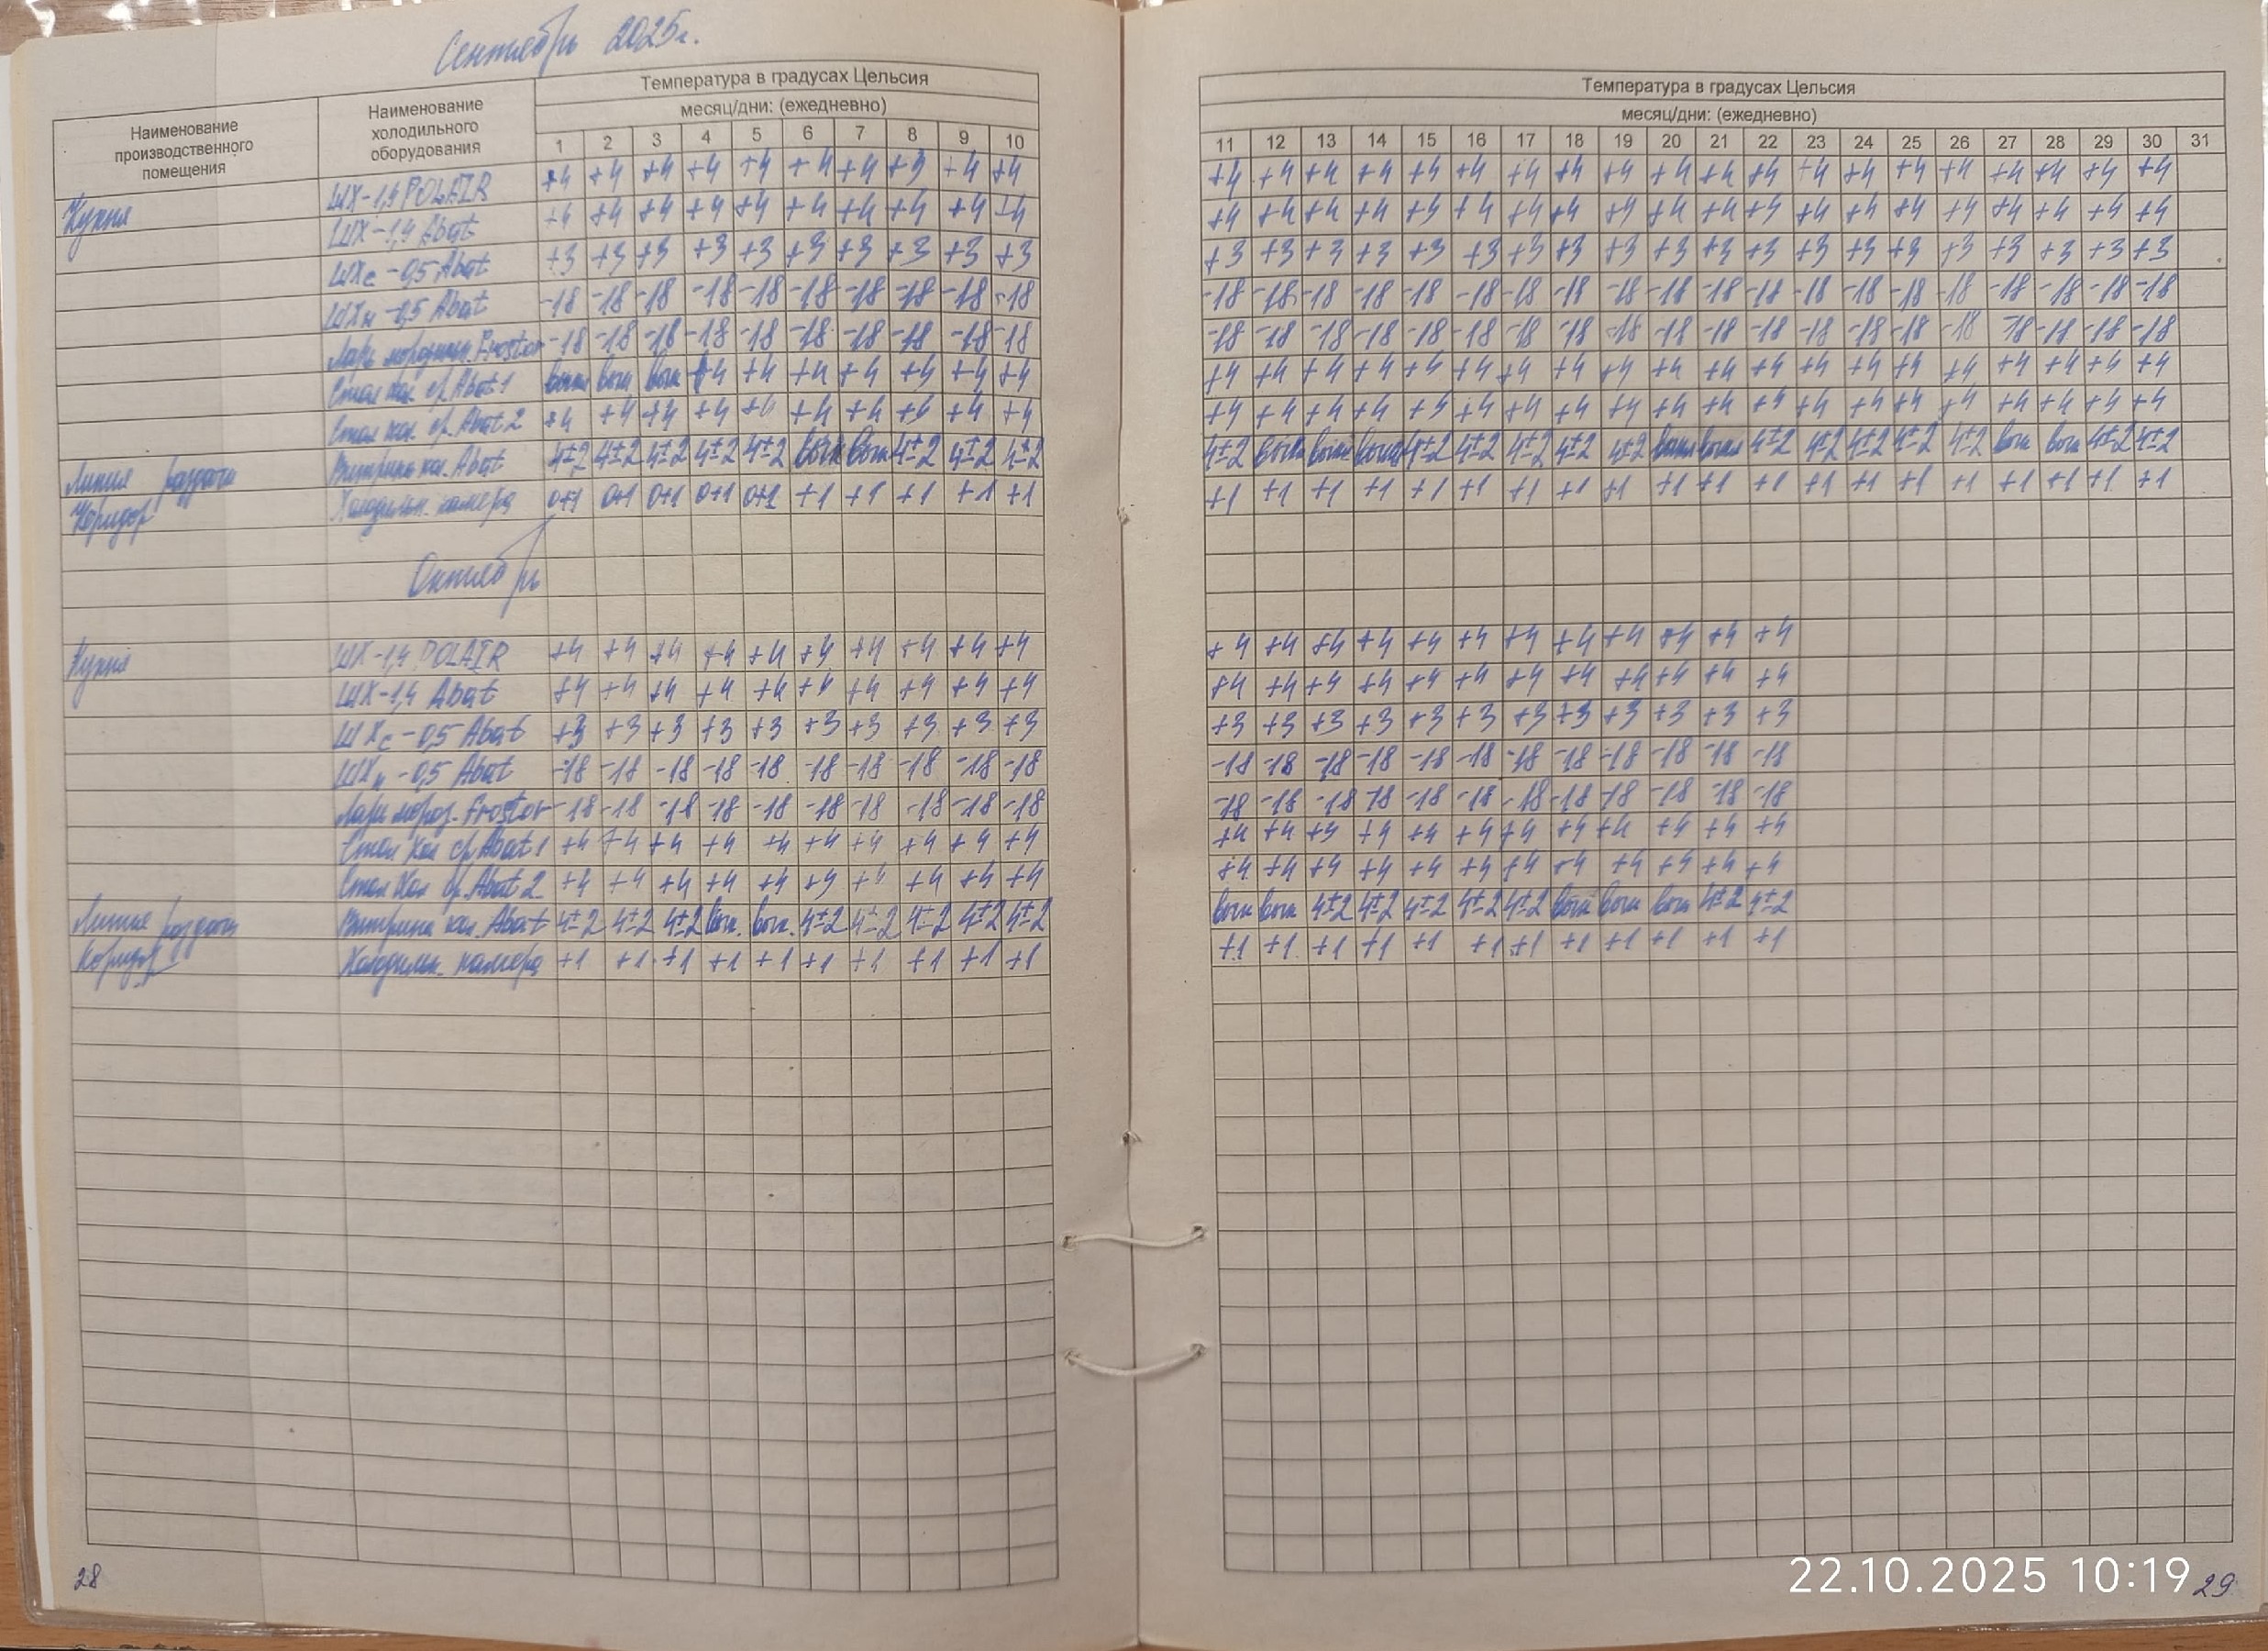 Сентябрь 2025г.
Наименование производственного помещения
Наименование холодильного оборудования
Температура в градусах Цельсия
месяц/дни: (ежедневно)
1 2 3 4 5 6 7 8 9 10
Температура в градусах Цельсия
месяц/дни: (ежедневно)
11 12 13 14 15 16 17 18 19 20 21 22 23 24 25 26 27 28 29 30 31
Кухня ШХ-1,4 POLAIR +4 +4 +4 +4 +4 +4 +4 +3 +4 +4 +4 +4 +4 +4 +4 +4 +4 +4 +4 +4 +4 +4 +4 +4 +4 +4 +4 +4 +4 +4
ШХ-1,4 Abat +4 +4 +4 +4 +4 +4 +4 +4 +4 +4 +4 +4 +4 +4 +4 +4 +4 +4 +4 +4 +4 +4 +4 +4 +4 +4 +4 +4 +4 +4
ШХс-0,5 Abat +3 +3 +3 +3 +3 +3 +3 +3 +3 +3 +3 +3 +3 +3 +3 +3 +3 +3 +3 +3 +3 +3 +3 +3 +3 +3 +3 +3 +3 +3
ШХн-0,5 Abat -18 -18 -18 -18 -18 -18 -18 -18 -18 -18 -18 -18 -18 -18 -18 -18 -18 -18 -18 -18 -18 -18 -18 -18 -18 -18 -18 -18 -18 -18
Ларь морозильн. Frostor -18 -18 -18 -18 -18 -18 -18 -18 -18 -18 -18 -18 -18 -18 -18 -18 -18 -18 -18 -18 -18 -18 -18 -18 -18 -18 -18 -18 -18 -18
Стол хол. ср. Abat 1 +4 +4 +4 +4 +4 +4 +4 +4 +4 +4 +4 +4 +4 +4 +4 +4 +4 +4 +4 +4 +4 +4 +4 +4 +4 +4 +4
Стол хол. ср. Abat 2 +4 +4 +4 +4 +4 +4 +4 +4 +4 +4 +4 +4 +4 +4 +4 +4 +4 +4 +4 +4 +4 +4 +4 +4 +4 +4 +4 +4 +4 +4
Линия раздачи Витрина хол. Abat 4±2 4±2 4±2 4±2 4±2 4±2 4±2 4±2 4±2 4±2 4±2 4±2 4±2 4±2 4±2 4±2 4±2 4±2 4±2 4±2
Коридор Холодильн. камера 0+1 0+1 0+1 0+1 0+1 +1 +1 +1 +1 +1 +1 +1 +1 +1 +1 +1 +1 +1 +1 +1 +1 +1 +1 +1 +1 +1 +1 +1 +1 +1
Октябрь
Кухня ШХ-1,4 POLAIR +4 +4 +4 +4 +4 +4 +4 +4 +4 +4 +4 +4 +4 +4 +4 +4 +4 +4 +4 +4 +4 +4
ШХ-1,4 Abat +4 +4 +4 +4 +4 +4 +4 +4 +4 +4 +4 +4 +4 +4 +4 +4 +4 +4 +4 +4 +4 +4
ШХс-0,5 Abat +3 +3 +3 +3 +3 +3 +3 +3 +3 +3 +3 +3 +3 +3 +3 +3 +3 +3 +3 +3 +3 +3
ШХн-0,5 Abat -18 -18 -18 -18 -18 -18 -18 -18 -18 -18 -18 -18 -18 -18 -18 -18 -18 -18 -18 -18 -18 -18
Ларь мороз. Frostor -18 -18 -18 -18 -18 -18 -18 -18 -18 -18 -18 -18 -18 -18 -18 -18 -18 -18 -18 -18 -18 -18
Стол хол ср. Abat 1 +4 +4 +4 +4 +4 +4 +4 +4 +4 +4 +4 +4 +4 +4 +4 +4 +4 +4 +4 +4 +4 +4
Стол хол ср. Abat 2 +4 +4 +4 +4 +4 +4 +4 +4 +4 +4 +4 +4 +4 +4 +4 +4 +4 +4 +4 +4 +4 +4
Линия раздачи Витрина хол. Abat 4±2 4±2 4±2 4±2 4±2 4±2 4±2 4±2 4±2 4±2 4±2 4±2 4±2 4±2 4±2
Коридор Холодильн. камера +1 +1 +1 +1 +1 +1 +1 +1 +1 +1 +1 +1 +1 +1 +1 +1 +1 +1 +1 +1 +1 +1
28
22.10.2025 10:19
29